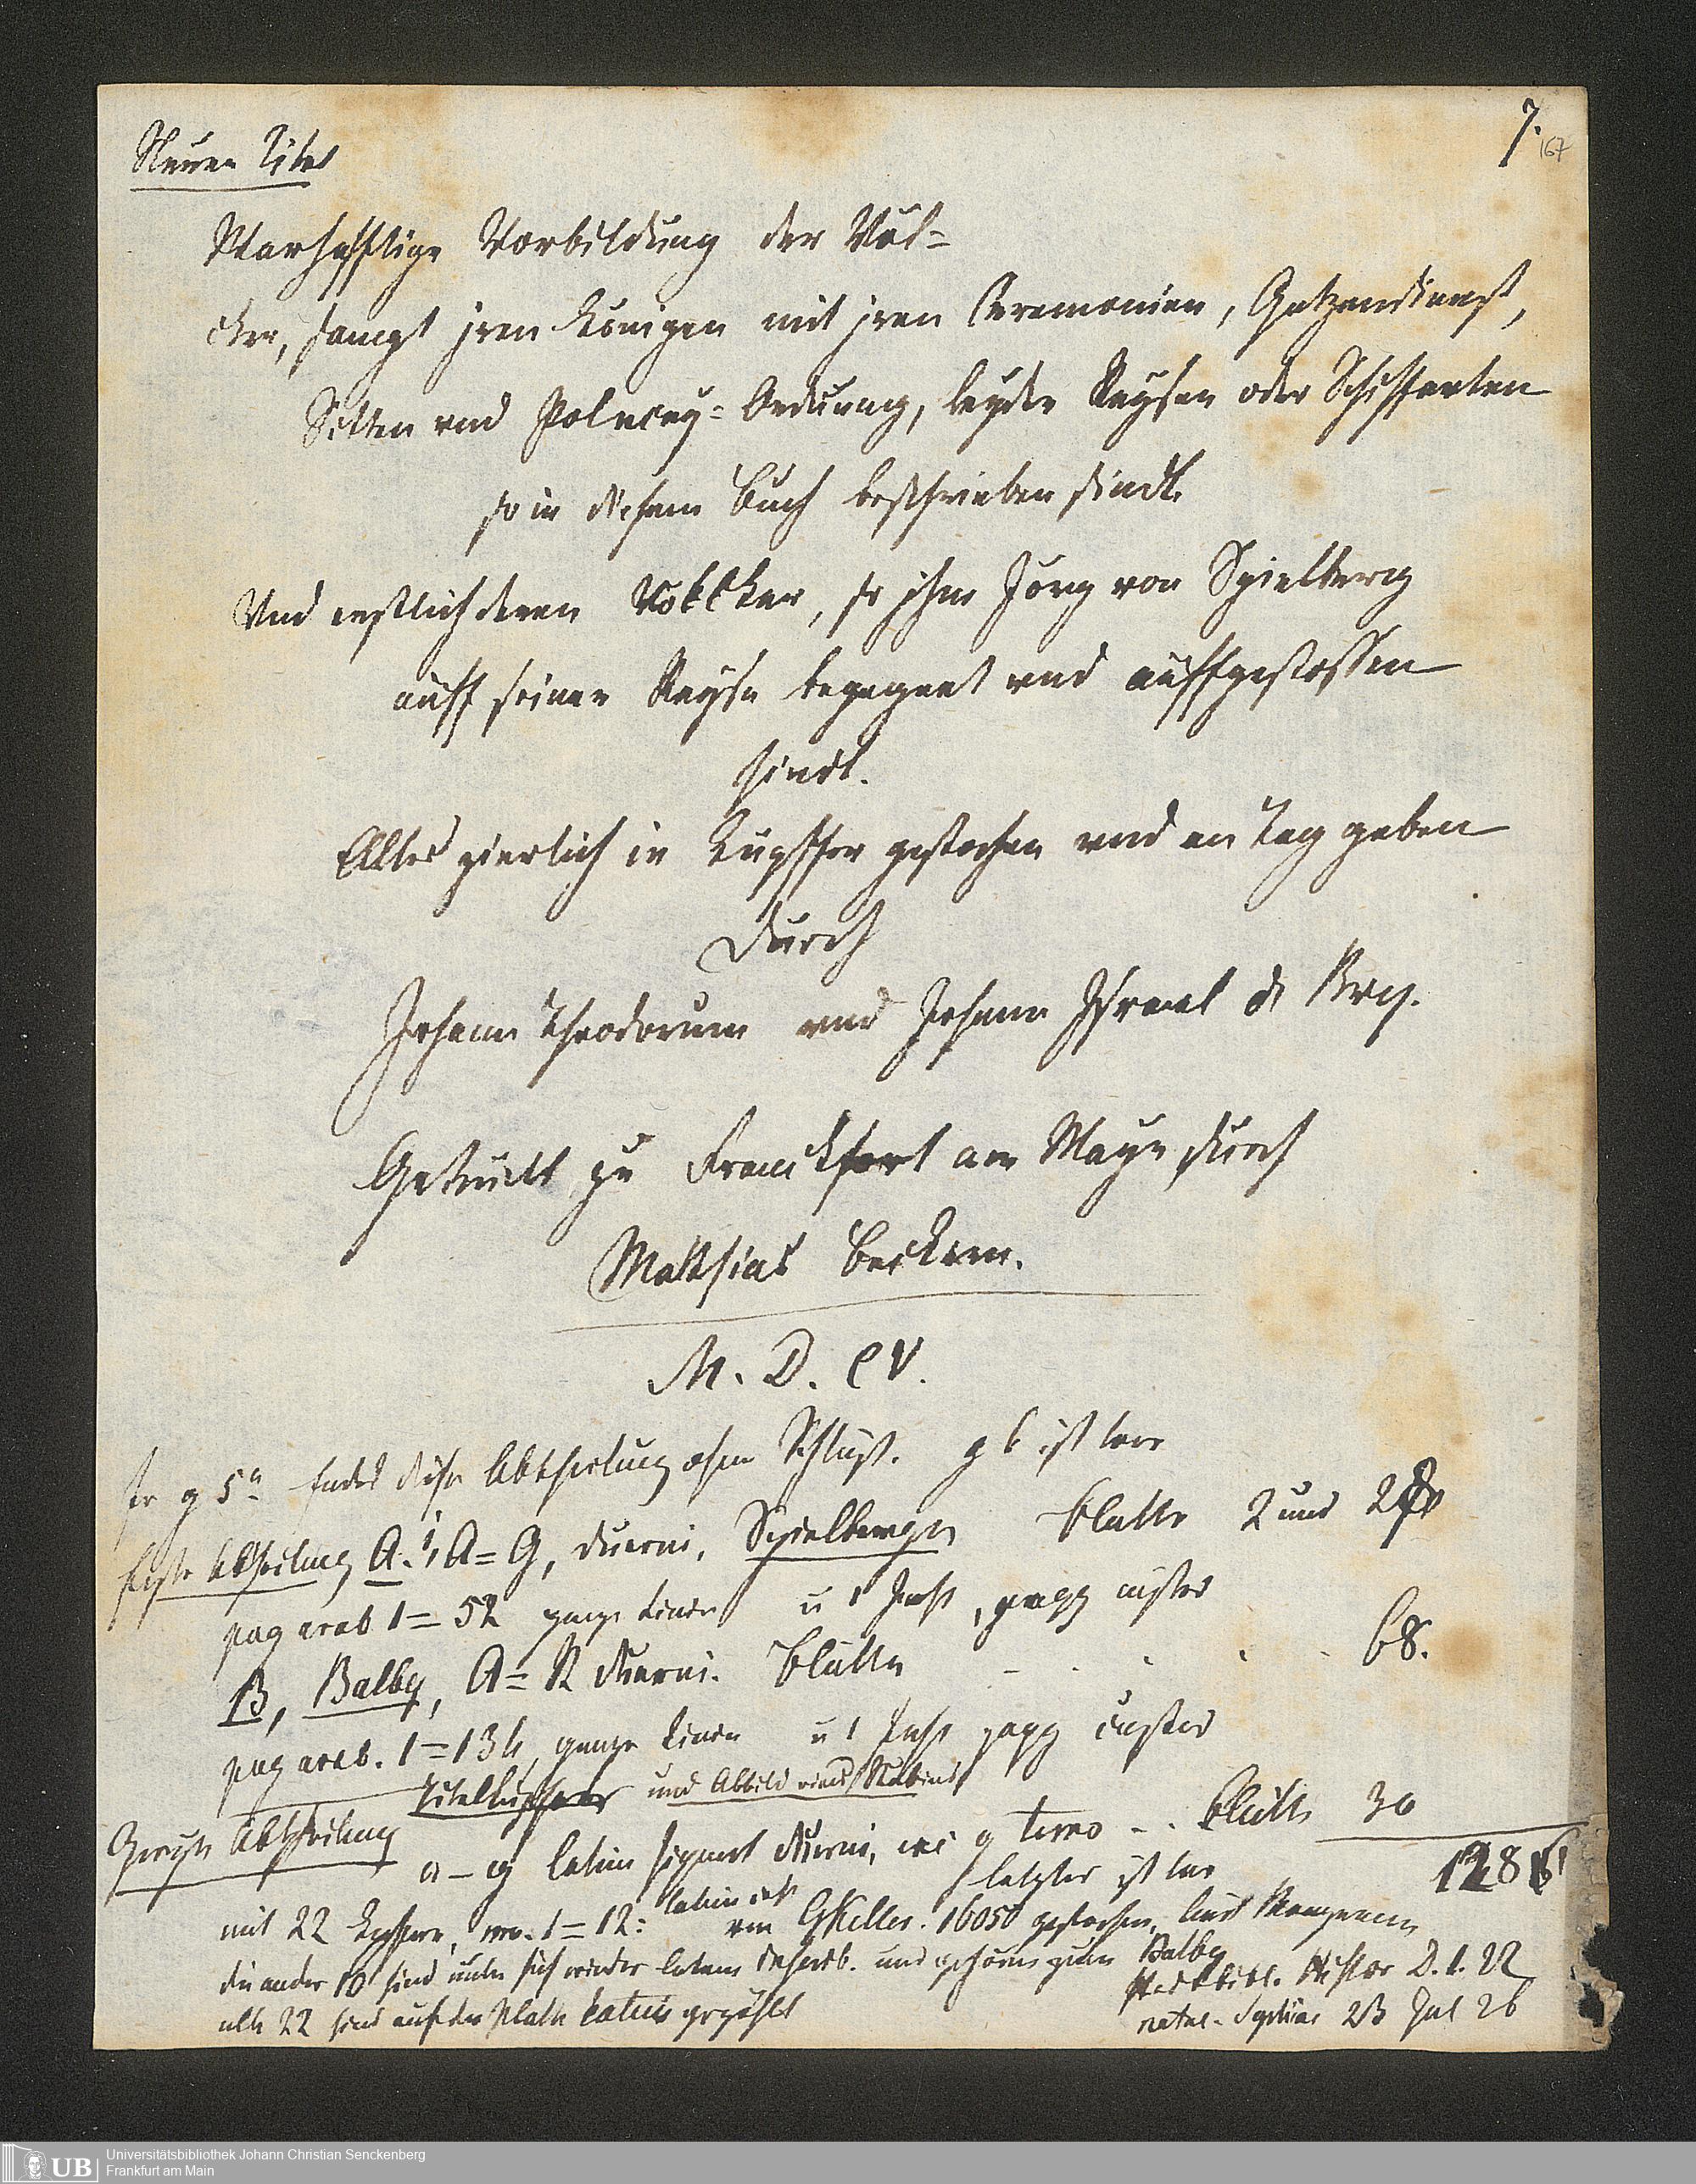 7.
167
Neuer Titel
Warhafftige Vorbildung der Völ=
cker, sampt jren Königen mit jren Ceremonien, Götzendienst,
Sitten vnd Policey=Ordnung, beyder Reysen oder Schiffarten
so in diesem Buch beschrieben sindt.
Vnd erstlich deren Völcker, so jhm Jörg von Spielberg
auff seiner Reyse begegnet vnd auffgestossen
sindt.
Alles zierlich in Kupffer gestochen vnd an Tag geben
Durch
Johann Theodorum vnd Johann Israel de Bry.
Getruckt zu Franckfort am Mayn durch
Matthias Beckern.
M. D. CV.
g 5a endet diese Abtheilung ohne Schluß. g 6 ist leer
Erste Abtheilung A. A=G, duerni, Spielbergen Blätter 2 und 28
pag arab 1=52 ganze Linien u 1
B, Balby, A=R duerni. Blätter - . . . . 68.
pag arab. 1=134, ganze Linien u 1
Titelkupfer und Abbild eines
Zweyte Abtheilung
a-g latein signirt duerni, g terno - . Blätter 30
letztes ist leer
128
mit 22 Kupfern, no. 1=12: von GKeller. 1605 gestochen,
die andern 10 sind und gehören zum Balby
alle 22 sind auf der Platte latein gezählt
Stadtbibl. Histor D. 1. 22
Universitätsbibliothek Johann Christian Senckenberg
Frankfurt am Main
UB